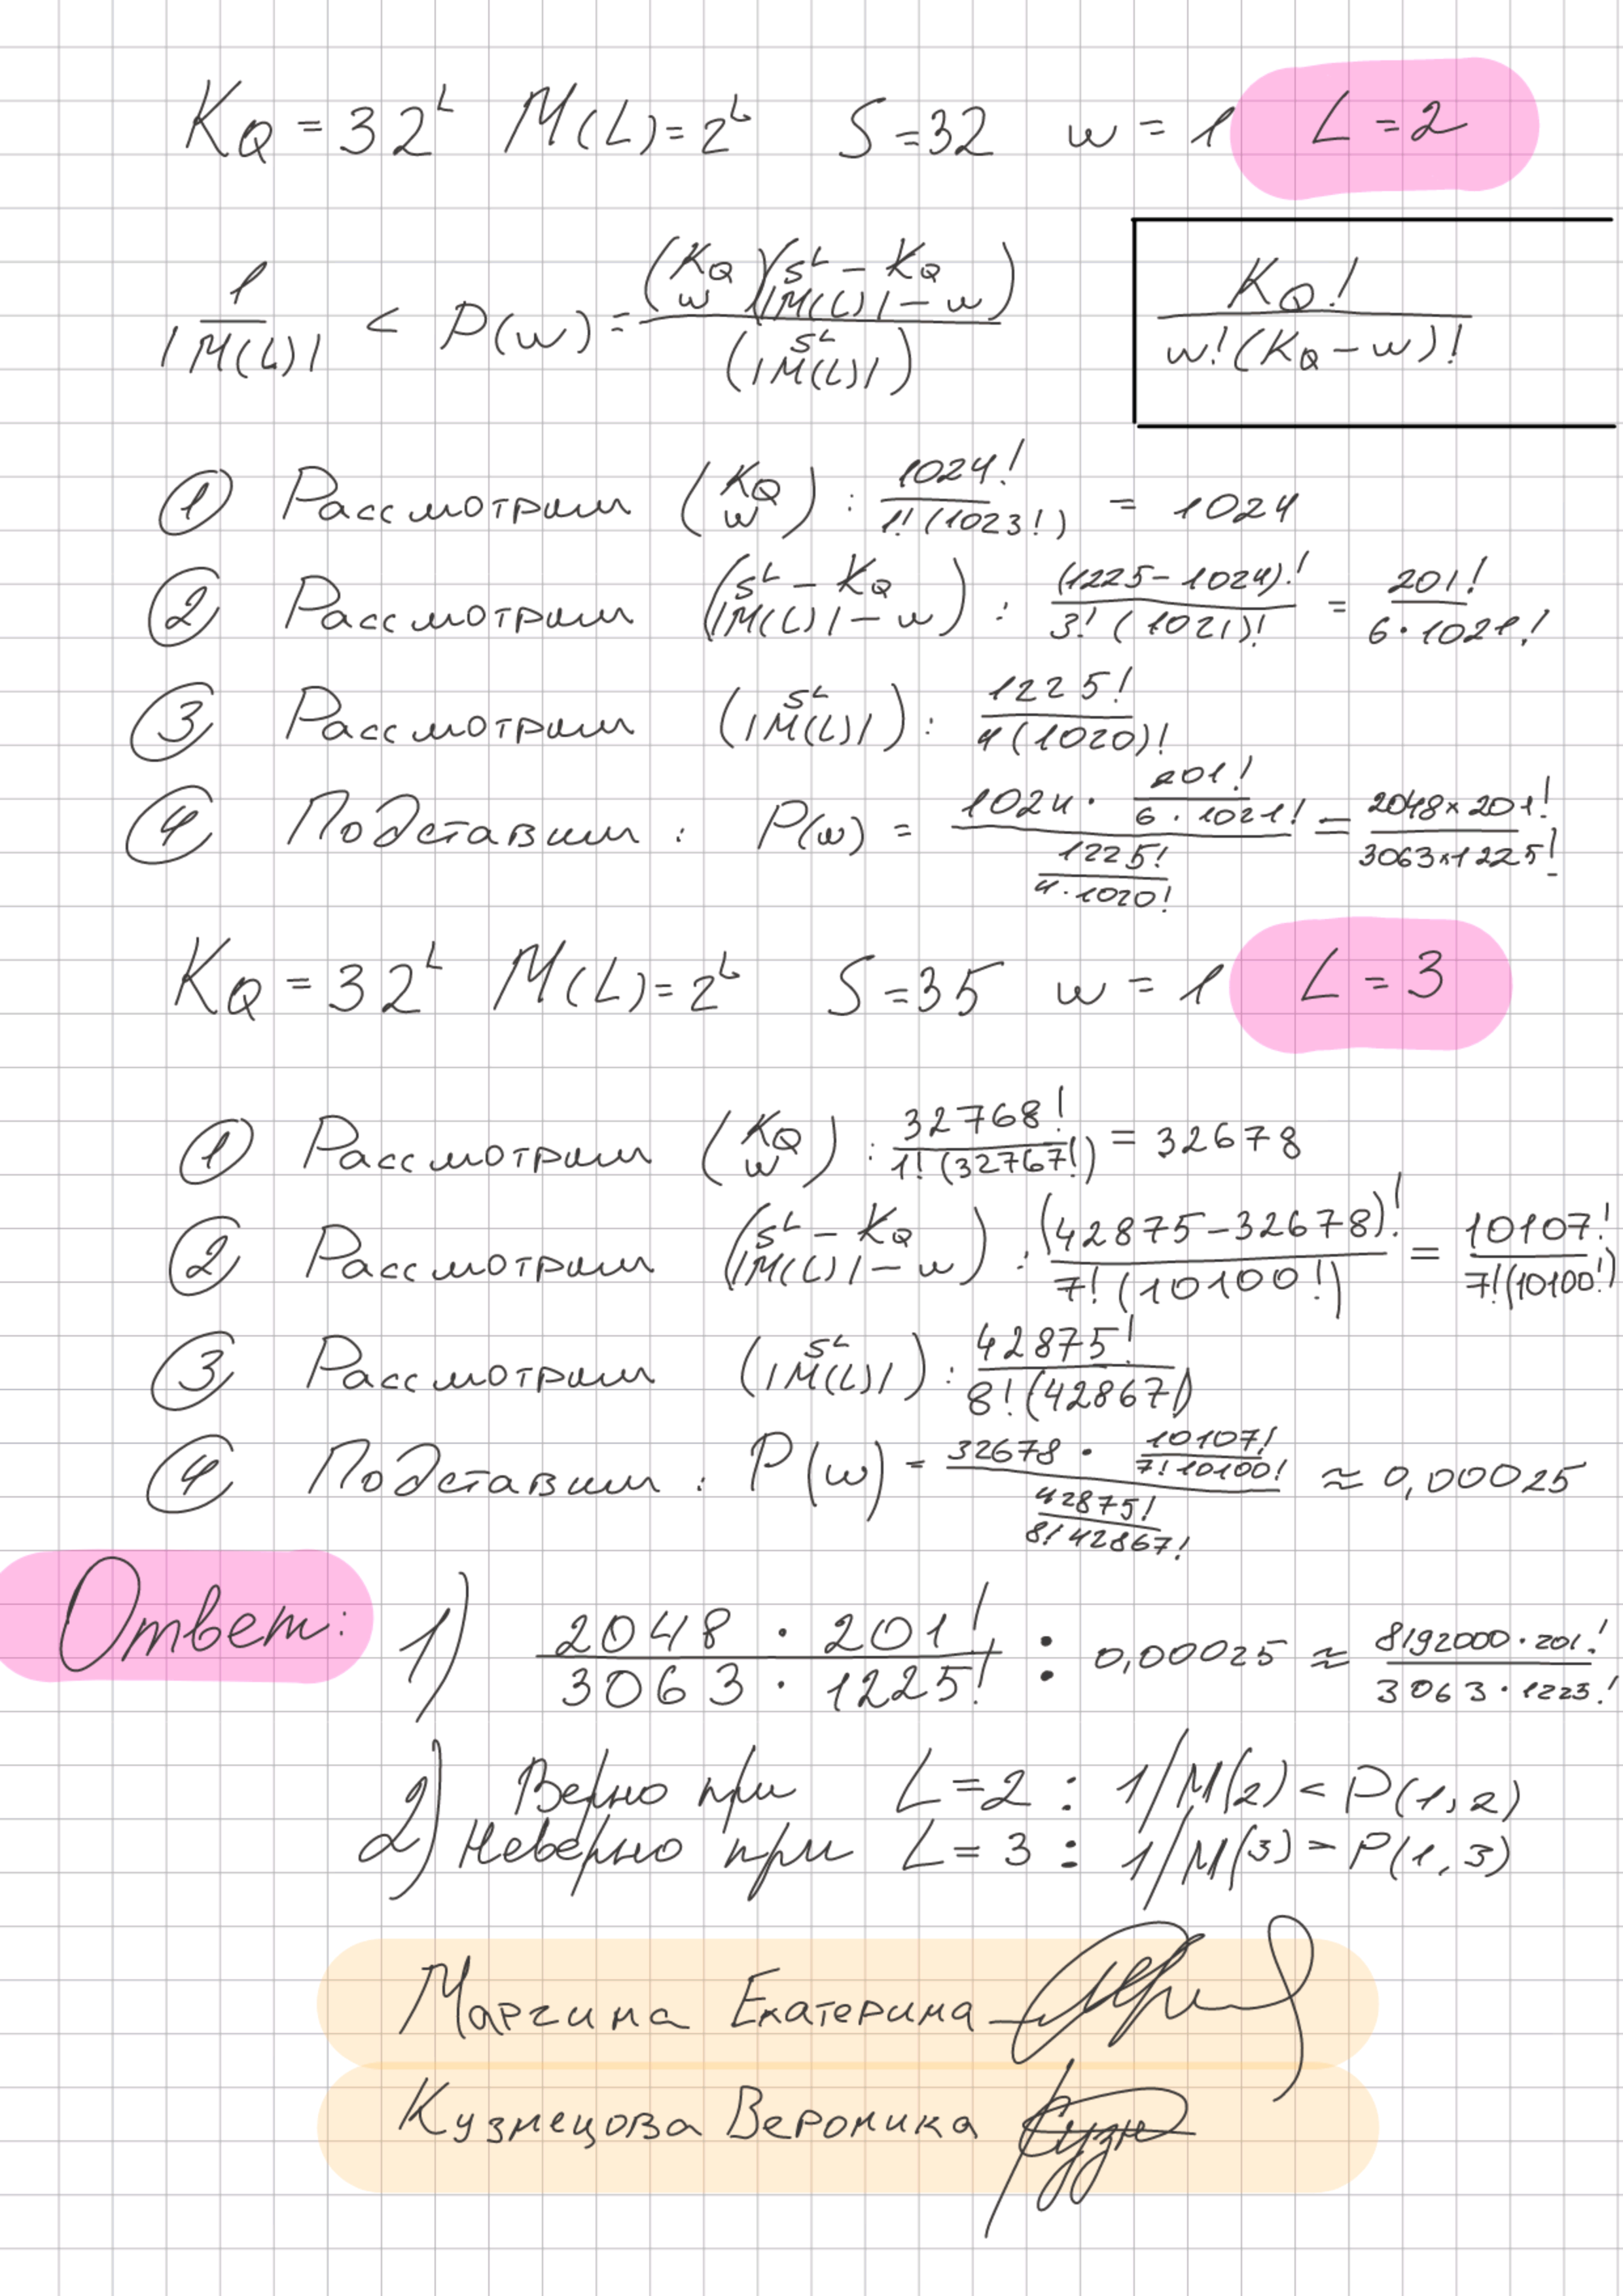 K_Q = 32^L M(L) = 2^L S = 32 w = 1 L = 2
1/|M(L)| < P(w) = (K_Q w)(S^L - K_Q |M(L)| - w)/(S^L |M(L)|) K_Q!/(w!(K_Q - w)!)
① Рассмотрим (K_Q w) : 1024!/(1!(1023!)) = 1024
② Рассмотрим (S^L - K_Q |M(L)| - w) : (1225 - 1024)!/(3!(1021)!) = 201!/(6·1021!)
③ Рассмотрим (S^L |M(L)|) : 1225!/(4(1020)!)
④ Подставим : P(w) = (1024 · 201!/(6·1021!))/(1225!/(4·1020!)) = (2048×201!)/(3063×1225!)
K_Q = 32^L M(L) = 2^L S = 35 w = 1 L = 3
① Рассмотрим (K_Q w) : 32768!/(1!(32767!)) = 32678
② Рассмотрим (S^L - K_Q |M(L)| - w) : (42875 - 32678)!/(7!(10100!)) = 10107!/(7!(10100!))
③ Рассмотрим (S^L |M(L)|) : 42875!/(8!(42867!))
④ Подставим : P(w) = (32678 · 10107!/(7!10100!))/(42875!/(8!42867!)) ≈ 0,00025
Ответ: 1) (2048 · 201!)/(3063 · 1225!) : 0,00025 ≈ (8192000·201!)/(3063·1225!)
2) Верно при L = 2 : 1/M(2) < P(1,2)
Неверно при L = 3 : 1/M(3) > P(1,3)
Маргина Екатерина
Кузнецова Вероника